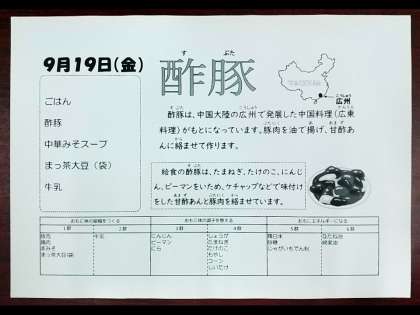 9月19日(金)
酢豚
す ぶた
広州
こうしゅう
ごはん
酢豚
中華みそスープ
まっ茶大豆（袋）
牛乳
酢豚は、中国大陸の広州で発展した中国料理（広東
料理）がもとになっています。豚肉を油で揚げ、甘酢あ
んに絡ませて作ります。
給食の酢豚は、たまねぎ、たけのこ、にんじ
ん、ピーマンをいため、ケチャップなどで味付け
をした甘酢あんと豚肉を絡ませています。
おもに体の組織をつくる
おもに体の調子を整える
おもにエネルギーになる
1群 2群 3群 4群 5群 6群
豚肉 牛乳 にんじん しょうが 精白米
鶏肉 ピーマン たまねぎ 砂糖
赤みそ にら たけのこ じゃがいもでん粉
まっ茶大豆(袋) もやし
コーン
しいたけ